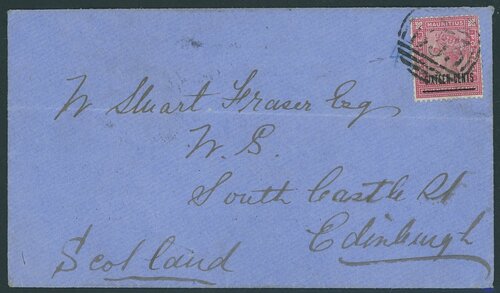 MAURITIUS
SIXTEEN CENTS
W Stuart Fraser Esq
W. S.
South Castle St
Edinburgh
Scotland